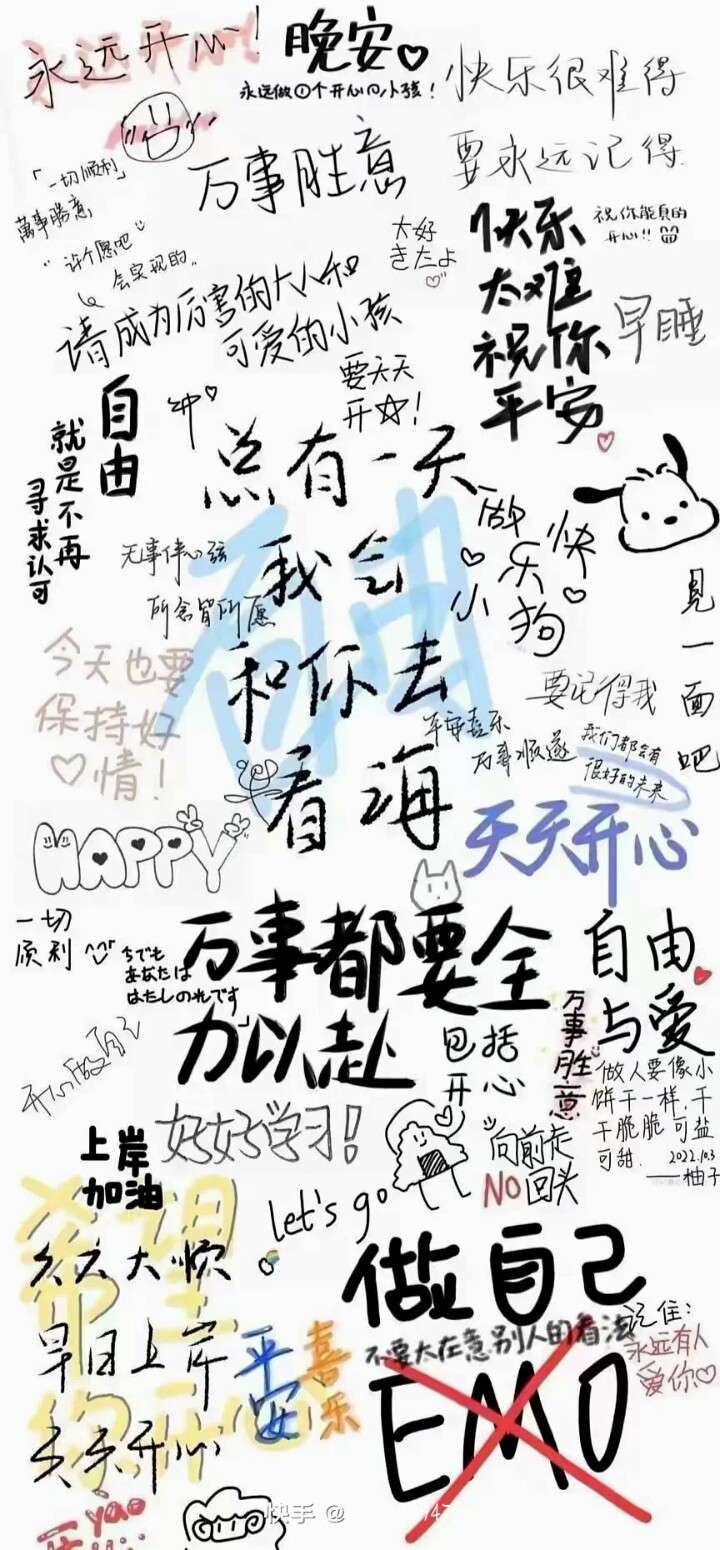 永远开心!
晚安♡
永远做①个开心の小孩!
快乐很难得
要永远记得
「一切顺利」
萬事勝意
万事胜意
"许个愿吧"
会实现的。
大好
きだよ
快乐
太难
祝你
平安
祝你能真的
开心!!
早睡
请成为厉害的大人和
可爱的小孩
要天天
开☆!
自由
就是不再
寻求认可
总有一天
我会
和你去
看海
做
快
乐
小
狗
见一面吧
无事伴心弦
所念皆所愿
自由
今天也要
保持好
♡情!
要记得我
平安喜乐
万事顺遂
我们都会有
很好的未来
天天开心
HAPPY
一切
顺利
今でも
あなたは
わたしの光です
万事都要全
力以赴
包括
开心
自由
与爱
万事胜意
开心做自己
做人要像小
饼干一样,干
干脆脆可盐
可甜.
2022.10.3
——柚子
好好学习!
上岸
加油
向前走
NO回头
let's go
希望
你开心
天天大顺
早日上岸
天天开心
平安
喜乐
做自己
不要太在意别人的看法
EMO
记住:
永远有人
爱你♡
yao
快手 @